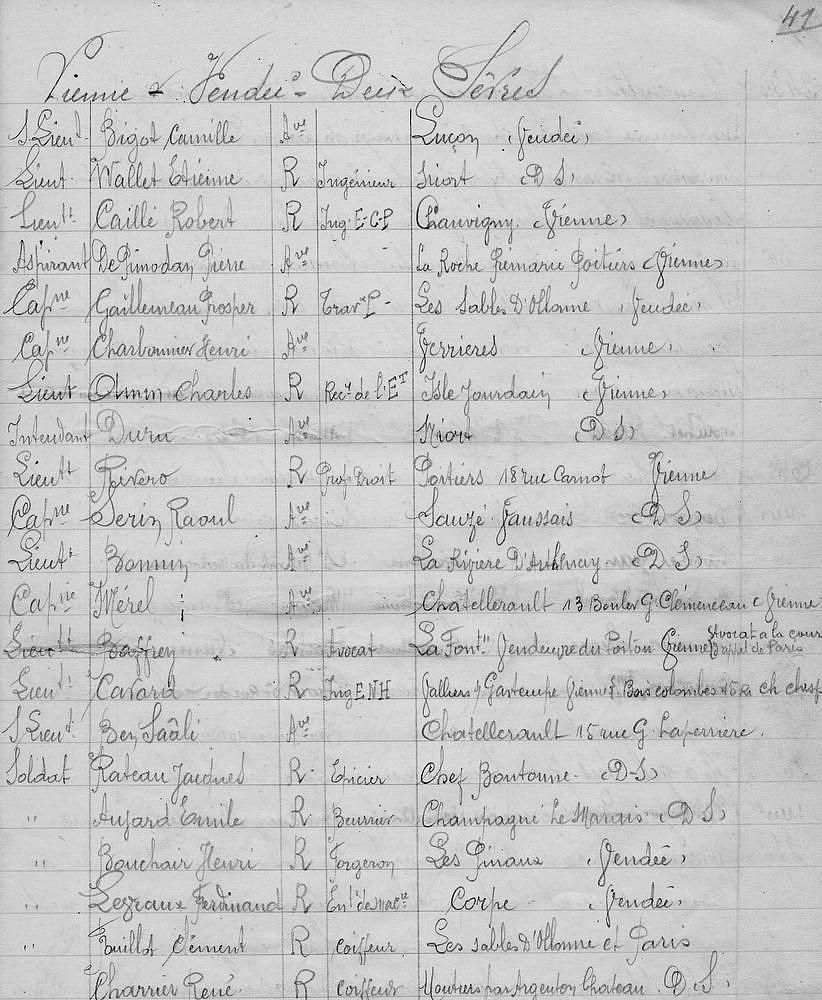 41
Vienne & Vendée - Deux Sèvres
S. Lieut. Bigot Camille Ave Luçon (Vendée)
Lieut. Wallet Etienne R Ingénieur Niort (D S)
Lieutt Caillé Robert R Ing. E-C-P Chauvigny. (Vienne)
Aspirant De Pimodan Pierre Ave La Roche Poitiers (Vienne)
Capne Gaillemeau Prosper R Travx P- Les Sables D'Ollonne (Vendée)
Capne Charbonnier Henri Ave Verrieres (Vienne)
Lieut Charles R Recr de l'ET Isle Jourdain (Vienne)
Intendant Duru Ave Niort (D S)
Lieutt Rivero R Prof. Droit Poitiers 18 rue Carnot Vienne
Capne Serin Raoul Ave Sauzé Vaussais (D S)
Lieutt Bonnin Ave La D' (D S)
Capne Mérel Ave Chatellerault 13 G. Clémenceau (Vienne
Lieutt Baffrey R Avocat La Fontne Vendeuvre du Poitou (Vienne) Avocat a la cour
d'appel de Paris
Lieutt Cavard R Ing ENH s/ Gartempe Vienne Bois colombes
S. Lieut. Ben Saâli Ave Chatellerault 15 rue G. Laperriere.
Soldat Rateau Jacques R. Epicier Chef Boutonne. (D-S)
" Aujard Emile R. Beurrier Champagné Le Marais. (D S)
" Bouchair Henri R Forgeron Les Pinaux (Vendée)
" Legraux Ferdinand R Corpe (Vendée)
" Clément R Coiffeur Les Sables D'Ollonne et Paris
Charrier René. R Coiffeur Moutiers par Argenton Chateau. D. S.